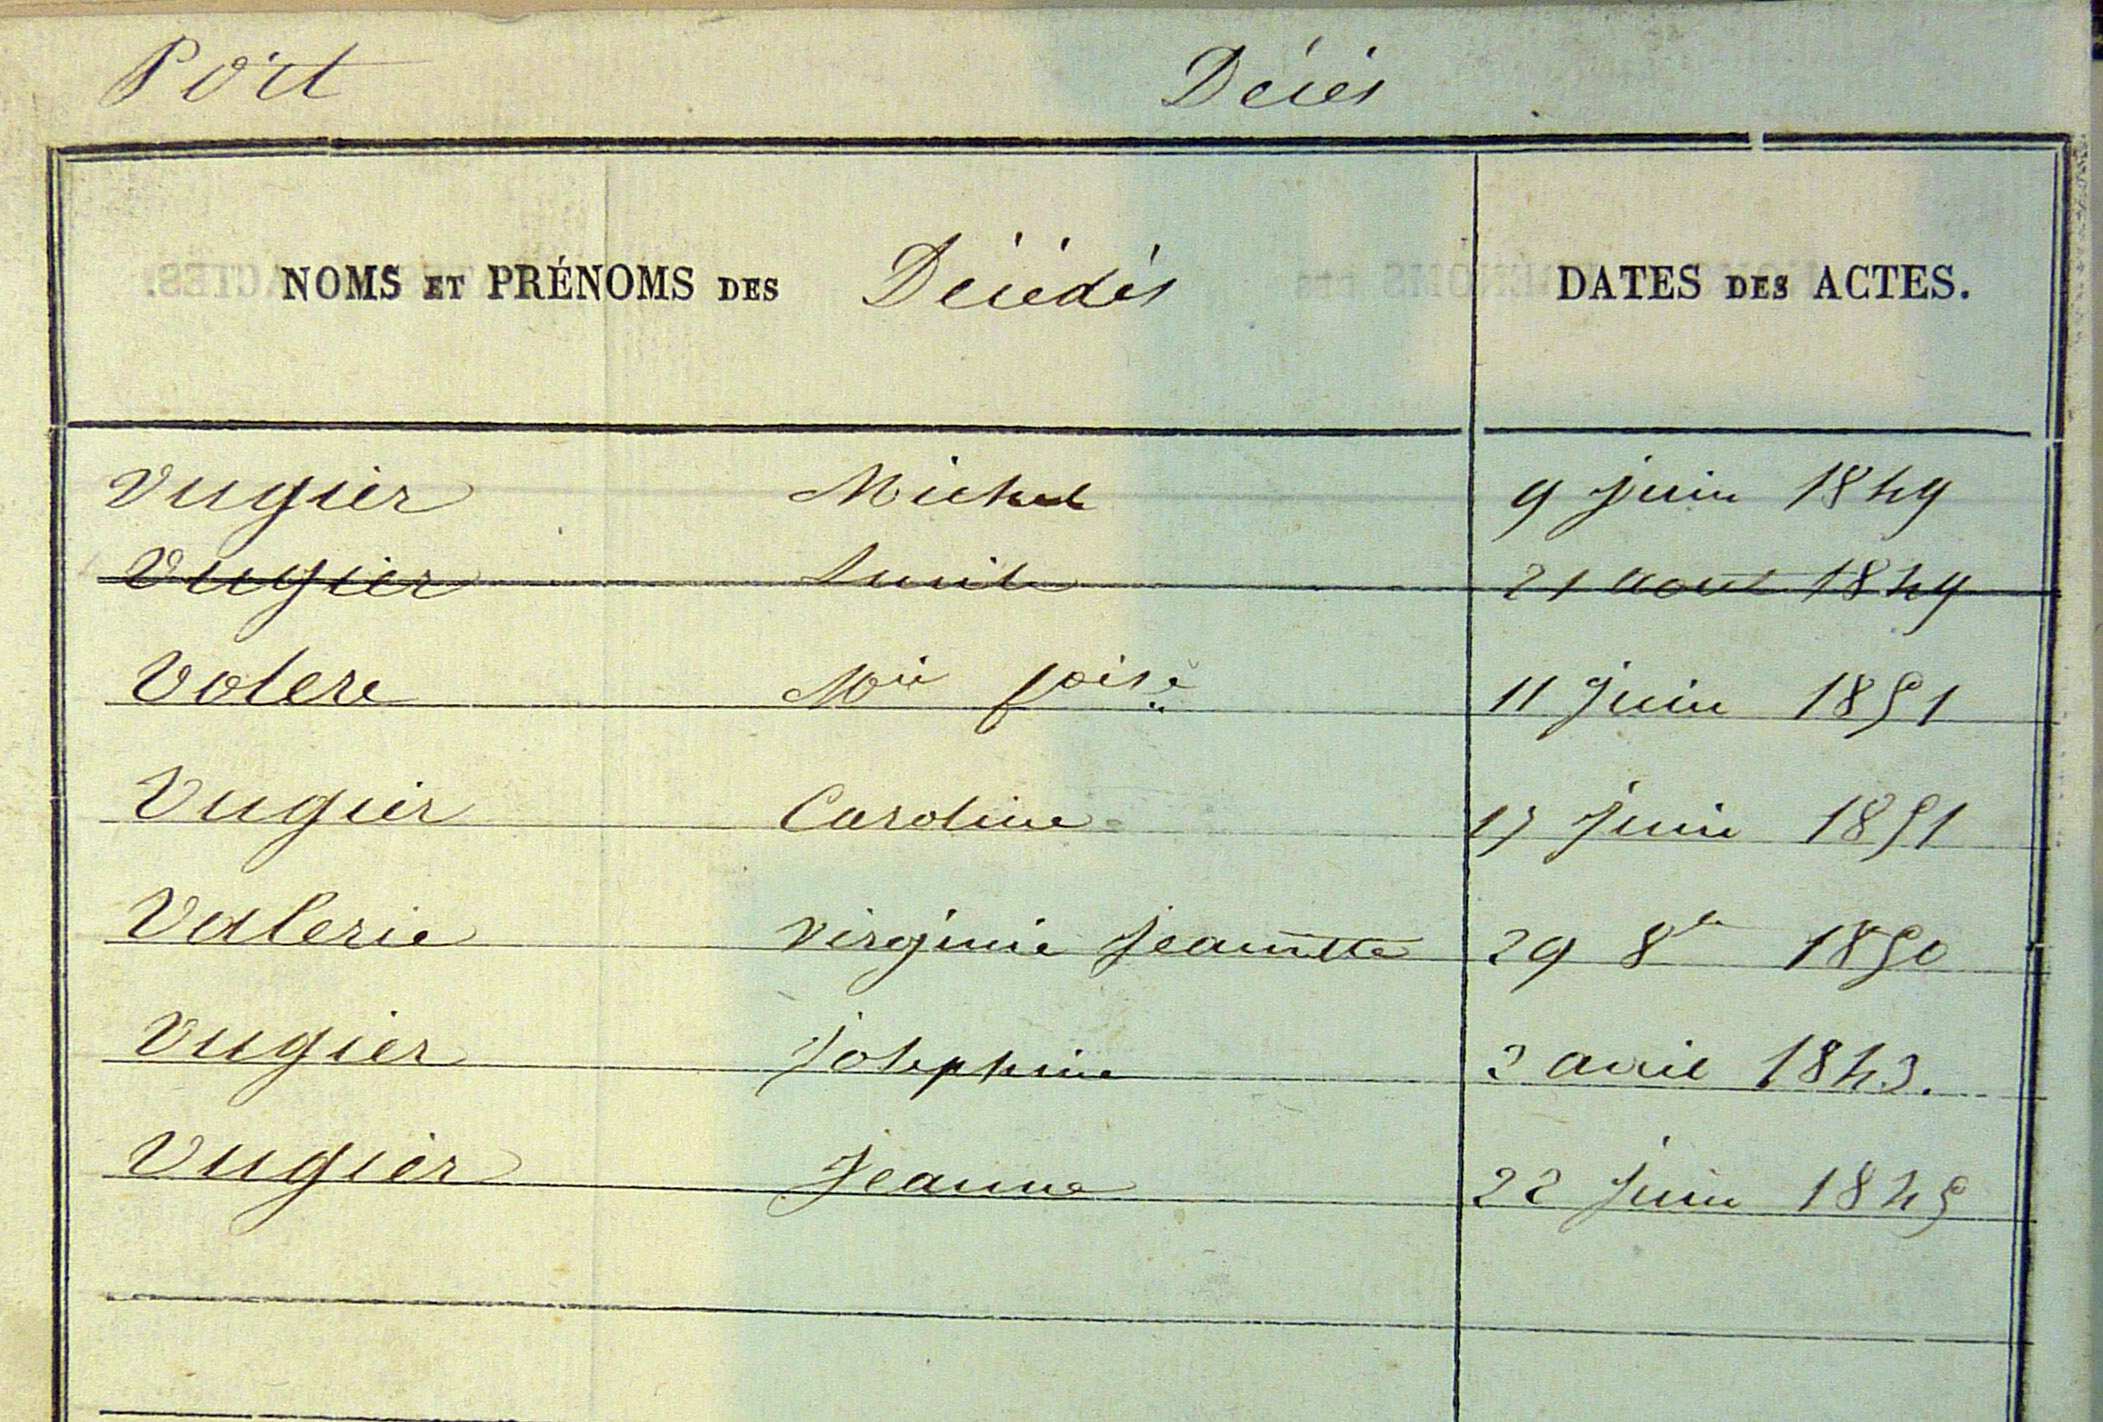 Port Décés
NOMS ET PRÉNOMS DES Décédés DATES DES ACTES.
Vugier Michel 9 juin 1849
Vugier 21 aout 1849
Volere Mie foise 11 juin 1851
Vugier Caroline 17 juin 1851
Valerie Virginie Jeannette 29 8bre 1850
Vugier Josephine 3 avril 1843.
Vugier Jeanne 22 juin 1845